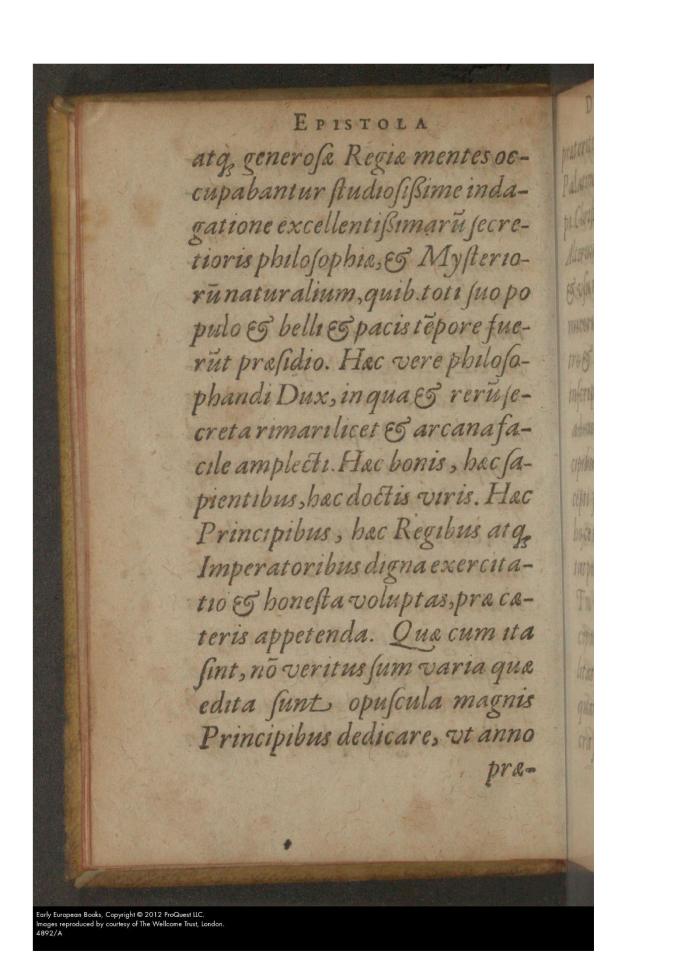 EPISTOLA
atq; generoſæ Regiæ mentes oc-
cupabantur ſtudioſiſsime inda-
gatione excellentiſsimarū ſecre-
tioris philoſophiæ, & Myſterio-
rū naturalium, quib. toti ſuo po
pulo & belli & pacis tēpore fue-
rūt præſidio. Hæc vere philoſo-
phandi Dux, in qua & rerū ſe-
creta rimari licet & arcana fa-
cile amplecti. Hæc bonis, hæc ſa-
pientibus, hæc doctis viris. Hæc
Principibus, hæc Regibus atq;
Imperatoribus digna exercita-
tio & honeſta voluptas, præ cæ-
teris appetenda. Quæ cum ita
ſint, nō veritus ſum varia quæ
edita ſunt opuſcula magnis
Principibus dedicare, vt anno
præ-
Early European Books, Copyright © 2012 ProQuest LLC.
Images reproduced by courtesy of The Wellcome Trust, London.
4892/A